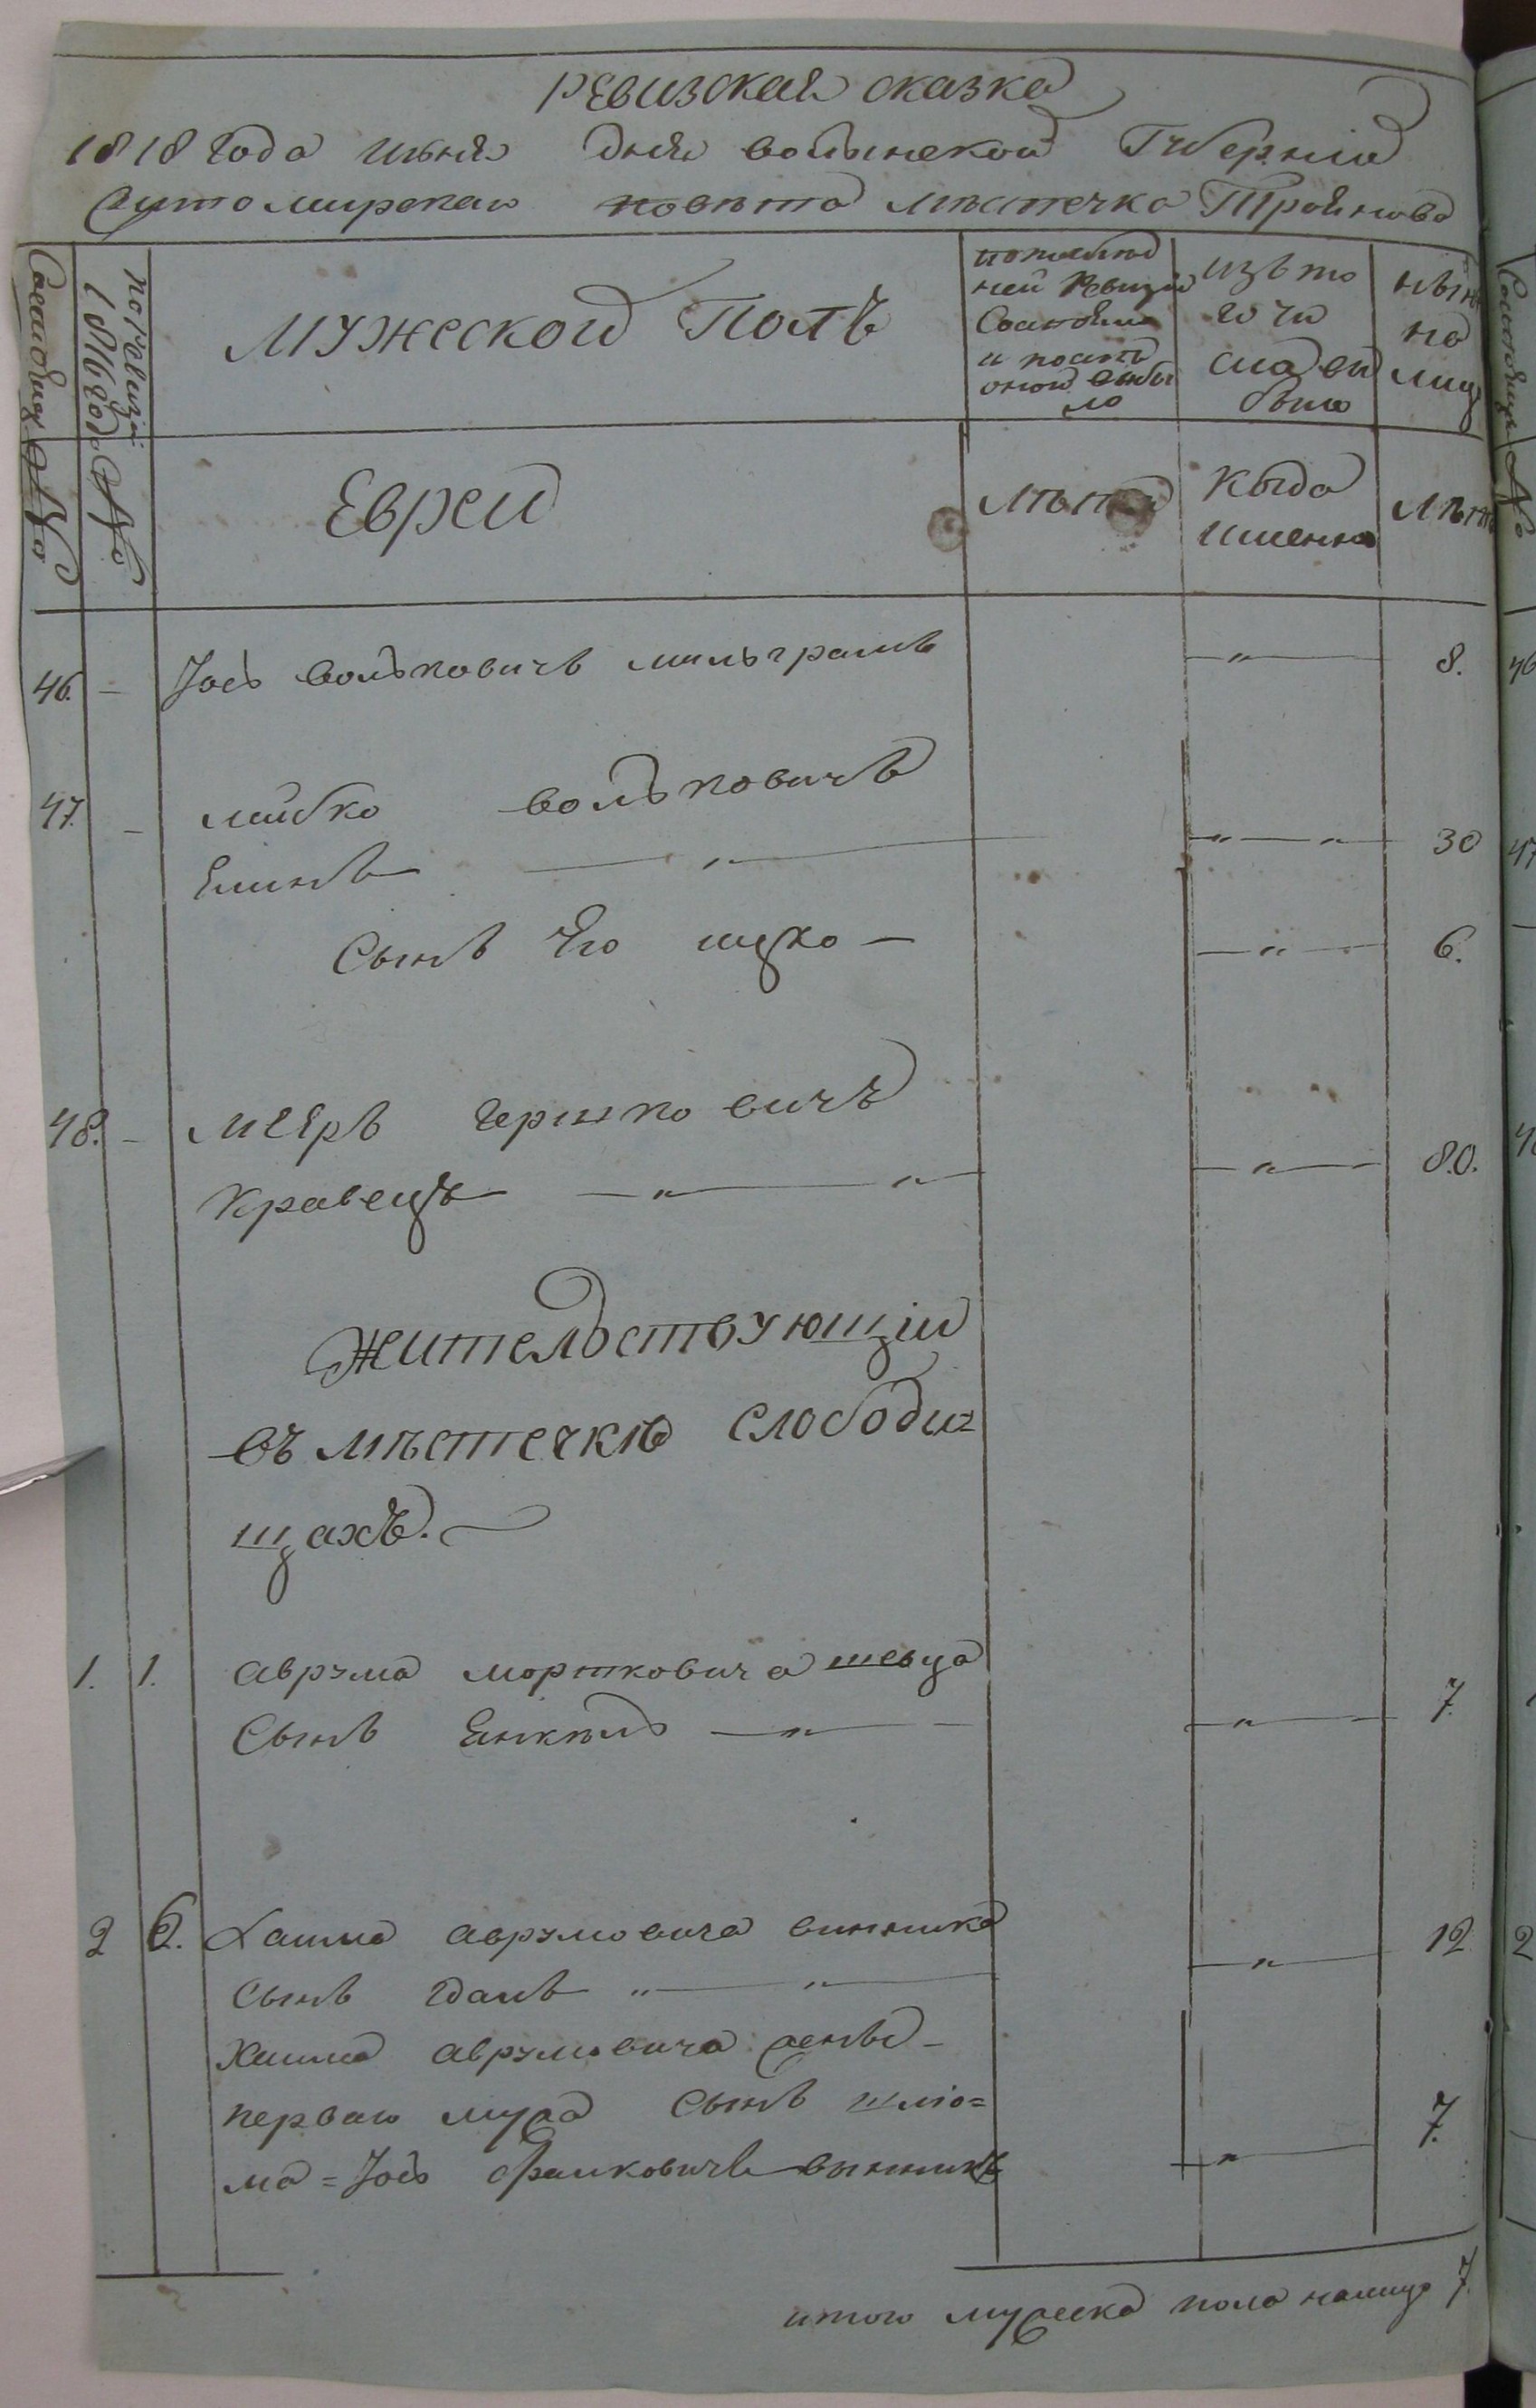 Ревизская сказка
1818 года июня дня волынской Губернии
Житомирскаго повета местечка Троянова
Состоящия №
по ревизий 1816 года №
мужеской Полъ
по последней ревизии Состояло и после оной выбыло
изъ того числа выбыло
ныне на лицо
Евреи
лета
Куда именно
лета
46. – Іось Вольковичъ мильграмъ " 8.
47. – лейбко вольковичъ
" " " 30
Сынъ Его ицко – " 6.
48. – меяръ гершковичъ
Кравецъ " " " 80.
жительствующіи
въ местечке слободи=
щахъ.
1. 1. аврума мортковича шевца
Сынъ Янкель " " 7.
2 2. Хаима аврумовича винника " 12
Сынъ " " 
Хаима аврумовича жены
перваго мужа Сынъ шліо=
ма=Іось Фалковичъ винникъ " 7.
итого мужеска пола налицо 7.